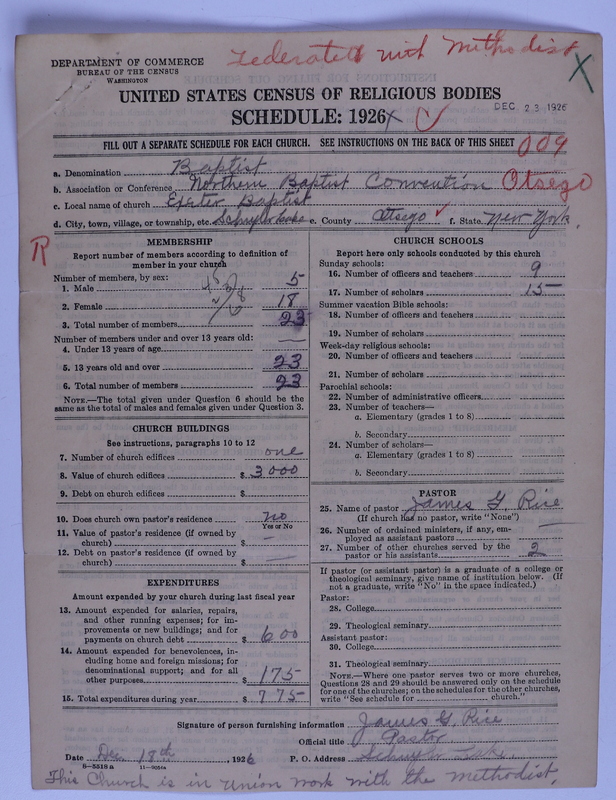 Federated with Methodist X
DEPARTMENT OF COMMERCE
BUREAU OF THE CENSUS
WASHINGTON
UNITED STATES CENSUS OF RELIGIOUS BODIES
SCHEDULE: 1926
DEC 23 1926
FILL OUT A SEPARATE SCHEDULE FOR EACH CHURCH. SEE INSTRUCTIONS ON THE BACK OF THIS SHEET 009
a. Denomination Baptist
b. Association or Conference Northern Baptist Convention Otsego
c. Local name of church Exeter Baptist
d. City, town, village, or township, etc. Schuyler Lake e. County Otsego f. State New York.
R
MEMBERSHIP
Report number of members according to definition of
member in your church
Number of members, by sex:
1. Male 5
2. Female 18
3. Total number of members 23
Number of members under and over 13 years old:
4. Under 13 years of age —
5. 13 years old and over 23
6. Total number of members 23
NOTE.—The total given under Question 6 should be
same as the total of males and females given under Question 3.
CHURCH BUILDINGS
See instructions, paragraphs 10 to 12
7. Number of church edifices one
8. Value of church edifices $ 3000
9. Debt on church edifices $
10. Does church own pastor's residence no
Yes or No
11. Value of pastor's residence (if owned by
church) $ —
12. Debt on pastor's residence (if owned by
church) $ —
EXPENDITURES
Amount expended by your church during last fiscal year
13. Amount expended for salaries, repairs,
and other running expenses; for im-
provements or new buildings; and for
payments on church debt $ 600
14. Amount expended for benevolences, in-
cluding home and foreign missions; for
denominational support; and for all
other purposes $ 175
15. Total expenditures during year $ 775
CHURCH SCHOOLS
Report here only schools conducted by this church
Sunday schools:
16. Number of officers and teachers 9
17. Number of scholars 15
Summer vacation Bible schools:
18. Number of officers and teachers
19. Number of scholars
Week-day religious schools:
20. Number of officers and teachers
21. Number of scholars
Parochial schools:
22. Number of administrative officers
23. Number of teachers—
a. Elementary (grades 1 to 8)
b. Secondary
24. Number of scholars—
a. Elementary (grades 1 to 8)
b. Secondary
PASTOR
25. Name of pastor James G. Rice
(If church has no pastor, write "None")
26. Number of ordained ministers, if any, em-
ployed as assistant pastors —
27. Number of other churches served by the
pastor or his assistants 2
If pastor (or assistant pastor) is a graduate of a college or
theological seminary, give name of institution below. (If
not a graduate, write "No" in the space indicated.)
Pastor:
28. College
29. Theological seminary
Assistant pastor:
30. College
31. Theological seminary
NOTE.—Where one pastor serves two or more churches,
Questions 28 and 29 should be answered only on the schedule
for one of the churches; on the schedules for the other churches,
write "See schedule for church."
Signature of person furnishing information James G. Rice
Official title Pastor
Date Dec 18th, 1926 P. O. Address Schuyler Lake
8—5518a
This Church is in Union work with the Methodist.